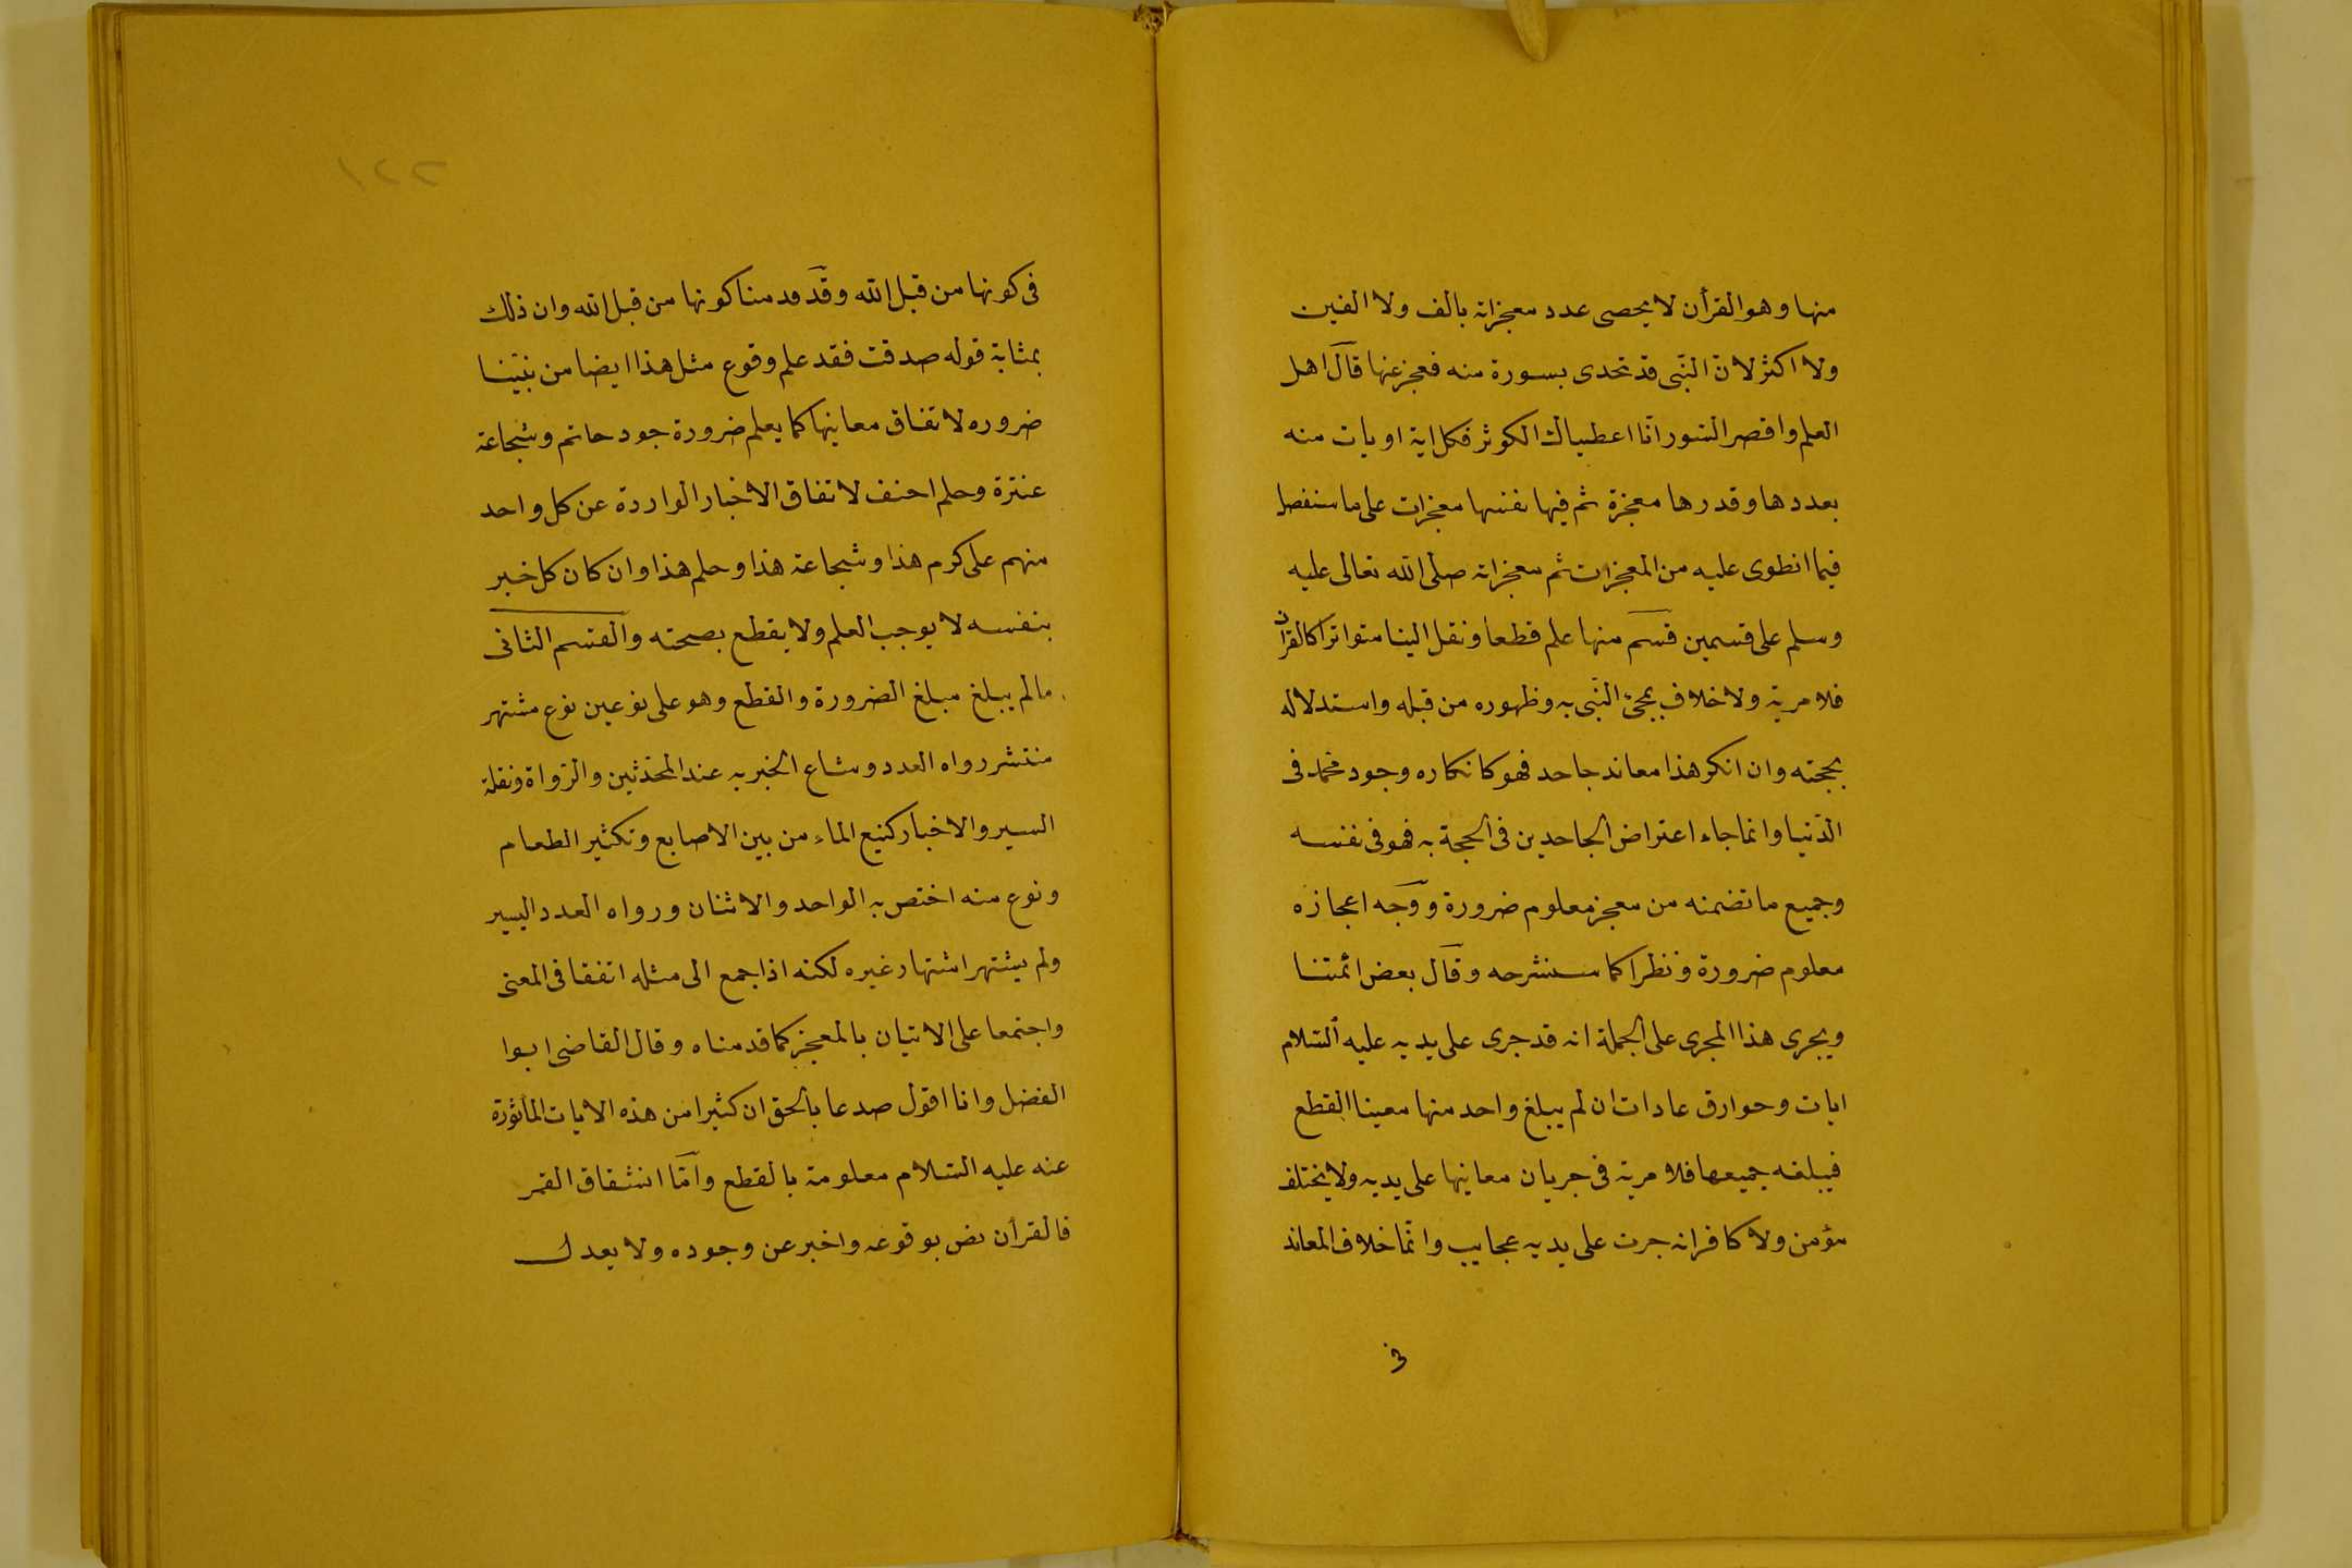 منها وهو القرأن لا يحصى عدد معجزاته بالف ولا الفين
ولا اكثر لانّ النّبى قد تحدى بسورة منه فعجز عنها قال اهل
العلم واقصر السّور انّا اعطيناك الكوثر فكل اية او يات منه
بعددها وقدرها معجزة ثم فيها نفسها معجزات على ما سنفصل
فيما انطوى عليه من المعجزات ثم معجزاته صلى الله تعالى عليه
وسلم على قسمين قسم منها علم قطعا ونقل الينا متواترا كالقرأن
فلا مرية ولا خلاف بمجئ النّبى به وظهوره من قبله واستدلاله
بحجته وان انكر هذا معاند جاحد فهو كانكاره وجود محمد فى
الدّنيا وانما جاء اعتراض الجاحدين فى الحجة به فهو فى نفسه
وجميع ما تضمنه من معجز معلوم ضرورة ووجه اعجازه
معلوم ضرورة ونظرا كما سنشرحه وقال بعض ائمتنا
ويجرى هذا المجرى على الجملة انه قد جرى على يديه عليه السّلام
ايات وحوارق عادات ان لم يبلغ واحد منها معينا القطع
فيبلغه جميعها فلا مرية فى جريان معانيها على يديه ولا يختلف
مؤمن ولا كافر انه جرت على يديه عجايب وانّما خلاف المعاند
فى
٢٢١
فى كونها من قبل الله وقد قدمنا كونها من قبل الله وان ذلك
بمثابة قوله صدقت فقد علم وقوع مثل هذا ايضا من نبيّنا
ضروره لاتفاق معانيها كما يعلم ضرورة جود حاتم وشجاعة
عنترة وحلم احنف لاتفاق الاخبار الواردة عن كل واحد
منهم على كرم هذا وشجاعة هذا وحلم هذا وان كان كل خبر
بنفسه لا يوجب العلم ولا يقطع بصحته والقسم الثانى
ما لم يبلغ مبلغ الضرورة والقطع وهو على نوعين نوع مشتهر
منتشر رواه العدد وشاع الخبر به عند المحدّثين والرّواة ونقلة
السير والاخبار كنبع الماء من بين الاصابع وتكثير الطعام
ونوع منه اختص به الواحد والاثنان ورواه العدد اليسير
ولم يشتهر اشتهار غيره لكنه اذا جمع الى مثله اتفقا فى المعنى
واجتمعا على الاتيان بالمعجز كما قدمناه وقال القاضى ابوا
الفضل وانا اقول صدعا بالحق ان كثيرا من هذه الايات المأثورة
عنه عليه السّلام معلومة بالقطع وامّا انشقاق القمر
فالقرأن نص بوقوعه واخبر عن وجوده ولا يعدل